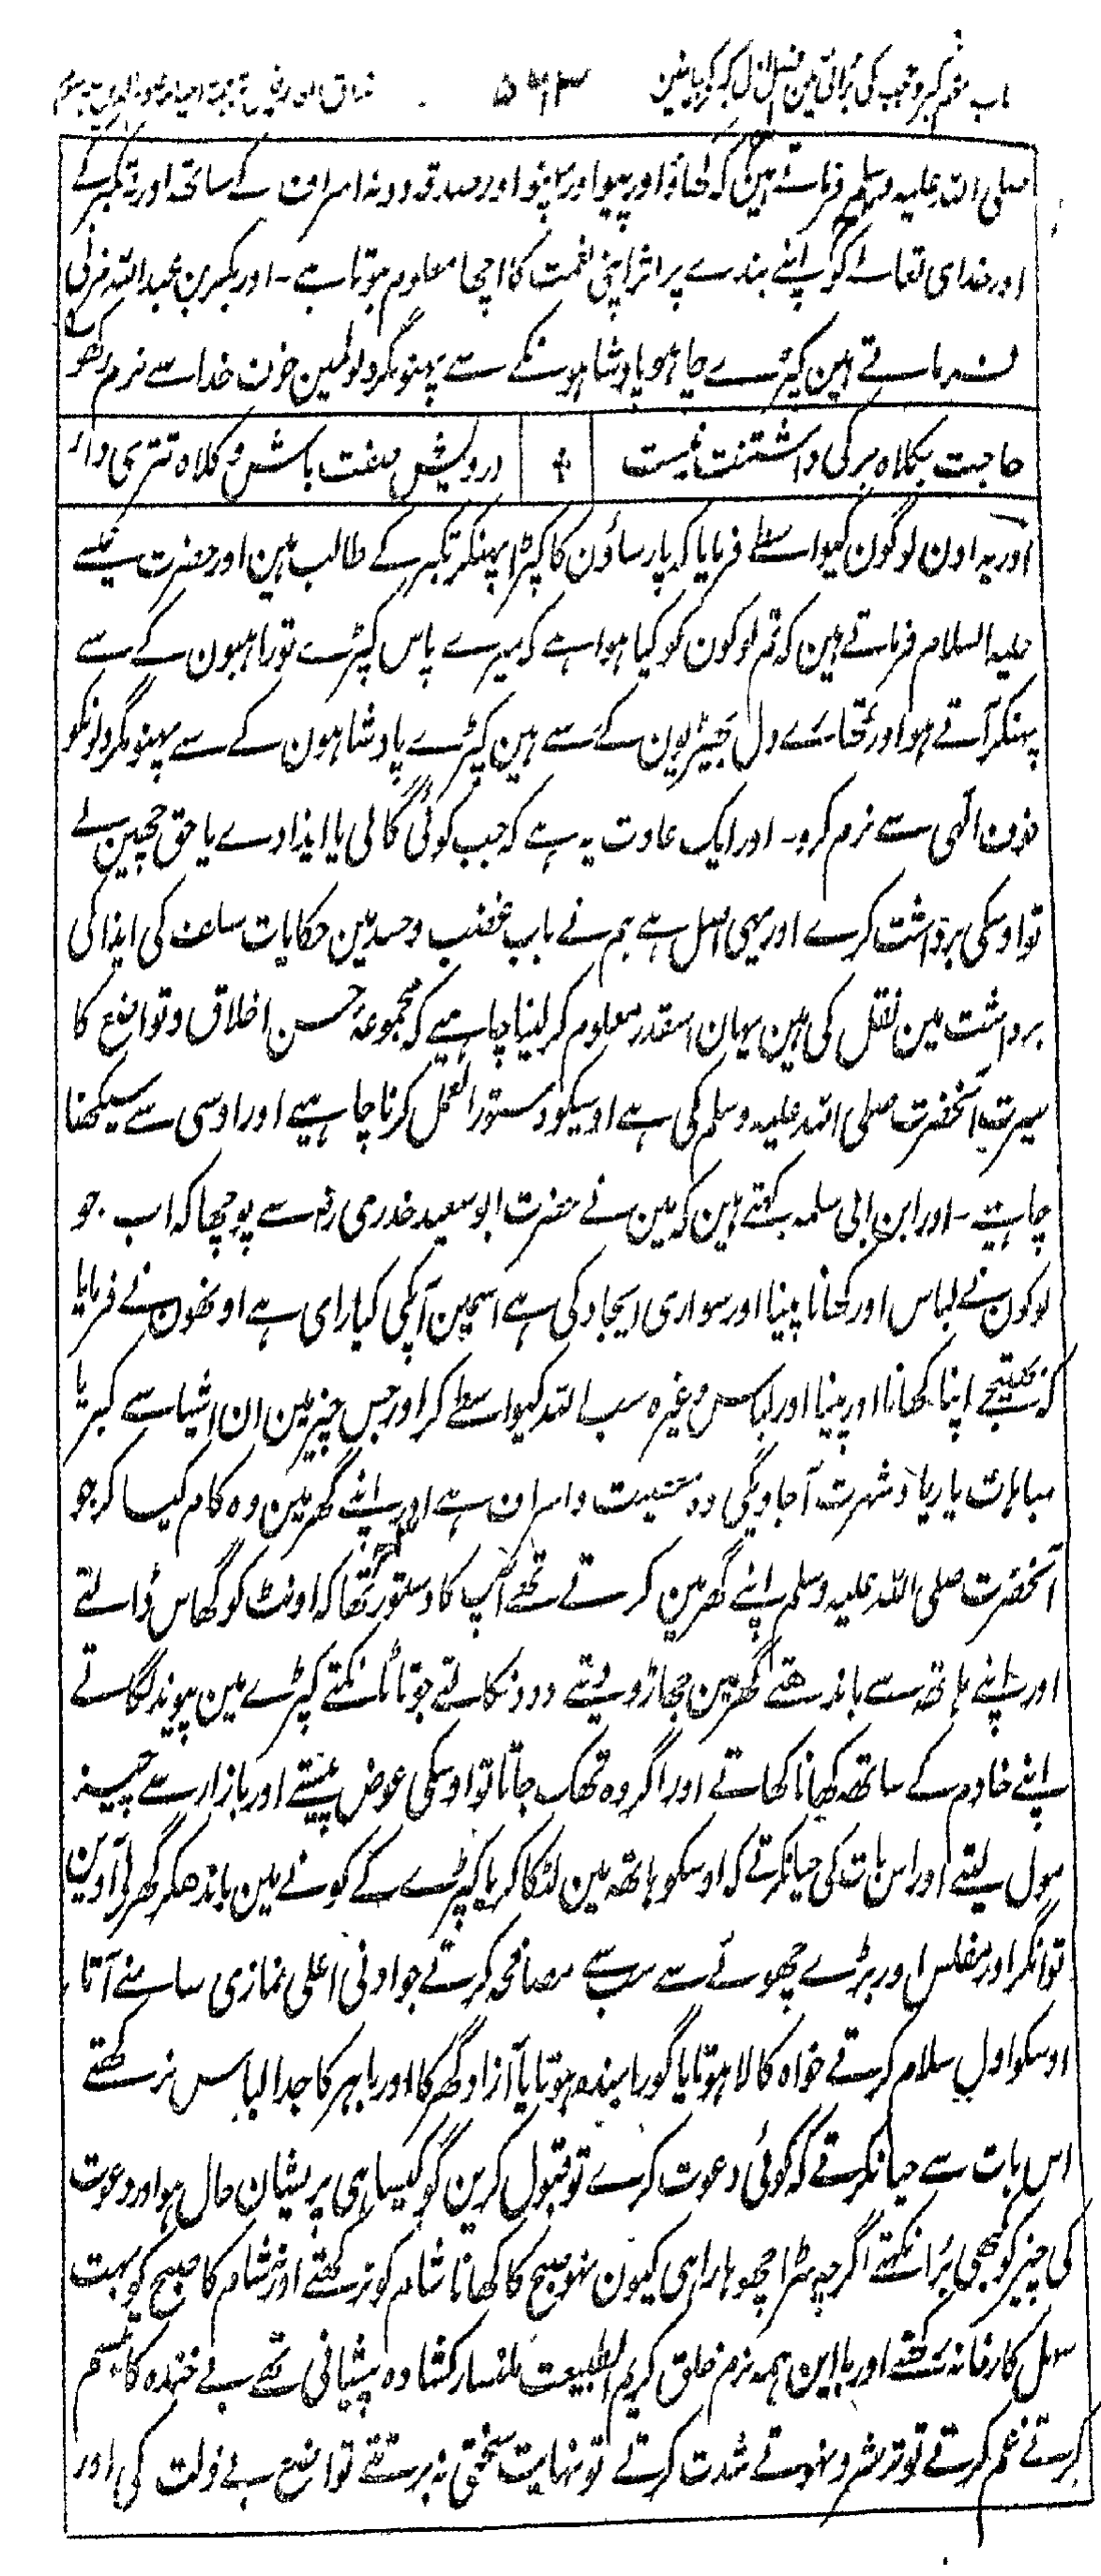 باب نہم کبر و عجب کی برائی مین فصل اول کبر کے بیانمین ۵۶۳ مذاق العارفین ترجمہ احیاء علوم الدین جلد سوم
صلی اللہ علیہ وسلم فرماتے ہین کہ کھاؤ اور پیو اور پہنو اور صدقہ دو نہ اسراف کے ساتھ اور نہ تکبر کے
اور خدای تعالے کو اپنے بندے پر اثر اپنی نعمت کا اچھا معلوم ہوتا ہے ۔ اور بکر بن عبداللہ مزنی
فرماتے ہین کپڑے چاہو بادشاہونکے سے پہنو مگر دلومین خوف خدا سے نرم رکھو
حاجت بکلاہ برکی داشتنت نیست + درویش صفت باش و کلاہ تتری دار
اور یہ اون لوگون کیواسطے فرمایا کہ پارساؤن کا کپڑا پہنکر تکبر کے طالب ہین اور حضرت عیسے
علیہ السلام فرماتے ہین کہ تم لوگون کو کیا ہوا ہے کہ میرے پاس کپڑے تو راہبون کے سے
پہنکر آتے ہو اور تمھارے دل بھیڑیون کے سے ہین کپڑے پادشاہون کے سے پہنو مگر دلونکو
خوف الٰہی سے نرم کرو۔ اور ایک عادت یہ ہے کہ جب کوئی گالی یا ایذا دے یا حق چھین لے
تو اوسکی برداشت کرے اور یہی اصل ہے ہم نے باب غضب و حسد مین حکایات سلف کی ایذا کی
برداشت مین نقل کی ہین یہان اسقدر معلوم کر لینا چاہیے کہ مجموعۂ حسن اخلاق و تواضع کا
سیرت آنحضرت صلی اللہ علیہ وسلم کی ہے اوسیکو دستور العمل کرنا چاہیے اور اوسی سے سیکھنا
چاہیے ۔ اور ابن ابی سلمہ کہتے ہین کہ مین نے حضرت ابو سعید خدری رضہ سے پوچھا کہ اب جو
لوگون نے لباس اور کھانا پینا اور سواری ایجاد کی ہے اسمین آپکی کیا رای ہے اونھون نے فرمایا
کہ بھتیجے اپنا کھانا اور پینا اور لباس وغیرہ سب اللہ کیواسطے کر اور جس چیز مین ان اشیا سے کبر یا
مباہات یا ریا و شہرت آجاویگی وہ معصیت و اسراف ہے اور اپنے گھر مین وہ کام کیا کر جو
آنحضرت صلی اللہ علیہ وسلم اپنے گھر مین کرتے تھے آپ کا دستور تھا کہ اونٹ کو گھاس ڈالتے
اور اپنے ہاتھ سے باندھتے گھر مین جھاڑو دیتے دودہ نکالتے جوتا ٹانکتے کپڑے مین پیوند لگاتے
اپنے خادم کے ساتھ کھانا کھاتے اور اگر وہ تھک جاتا تو اوسکی عوض پیستے اور بازار سے چیز
مول لیتے اور اس بات کی حیا نکرتے کہ اوسکو ہاتھ مین لٹکا کر یا کپڑے کے کونے مین باندھکر گھر لے آوین
توانگر اور مفلس اور بڑے چھوٹے سے سب سے مصافحہ کرتے جو ادنی اعلی نمازی سامنے آتا
اوسکو اول سلام کرتے خواہ کالا ہوتا یا گورا بندہ ہوتا یا آزاد گھر کا اور باہر کا جدا لباس نرکھتے
اس بات سے حیا نکرتے کہ کوئی دعوت کرے تو قبول کرین گو کیسا ہی پریشان حال ہو اور دعوت
کی چیز کو بھی برا نکہتے اگرچہ سڑا چھوہارا ہی کیون نہو صبح کا کھانا شام کو نرکھتے اور نہ شام کا صبح کو بہت
سہل کارخانہ رکھتے اور با این ہمہ نرم خلق کریم الطبیعت ملنسار کشادہ پیشانی تھے بے خندہ کا تبسم
کرتے غم کرتے تو ترشرو نہوتے شدت کرتے تو نہایت سختی نہ برتتے تواضع بے ذلت کی اور